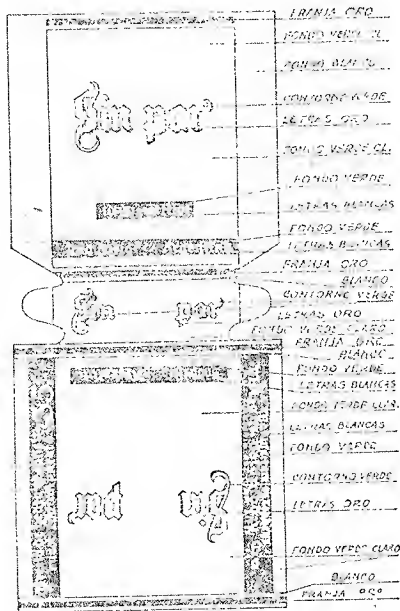 FRANJA ORO
FONDO VERDE CL.
FONDO BLANCO
CONTORNO VERDE
LETRAS ORO
FONDO VERDE CL.
FONDO VERDE
LETRAS BLANCAS
FONDO VERDE
LETRAS BLANCAS
FRANJA ORO
BLANCO
CONTORNO VERDE
LETRAS ORO
FONDO VERDE CLARO
FRANJA ORO
BLANCO
FONDO VERDE
LETRAS BLANCAS
FONDO VERDE CLAR.
LETRAS BLANCAS
FONDO VERDE
CONTORNO VERDE
LETRAS ORO
FONDO VERDE CLARO
BLANCO
FRANJA ORO
Sin par
Sin par
Sin par